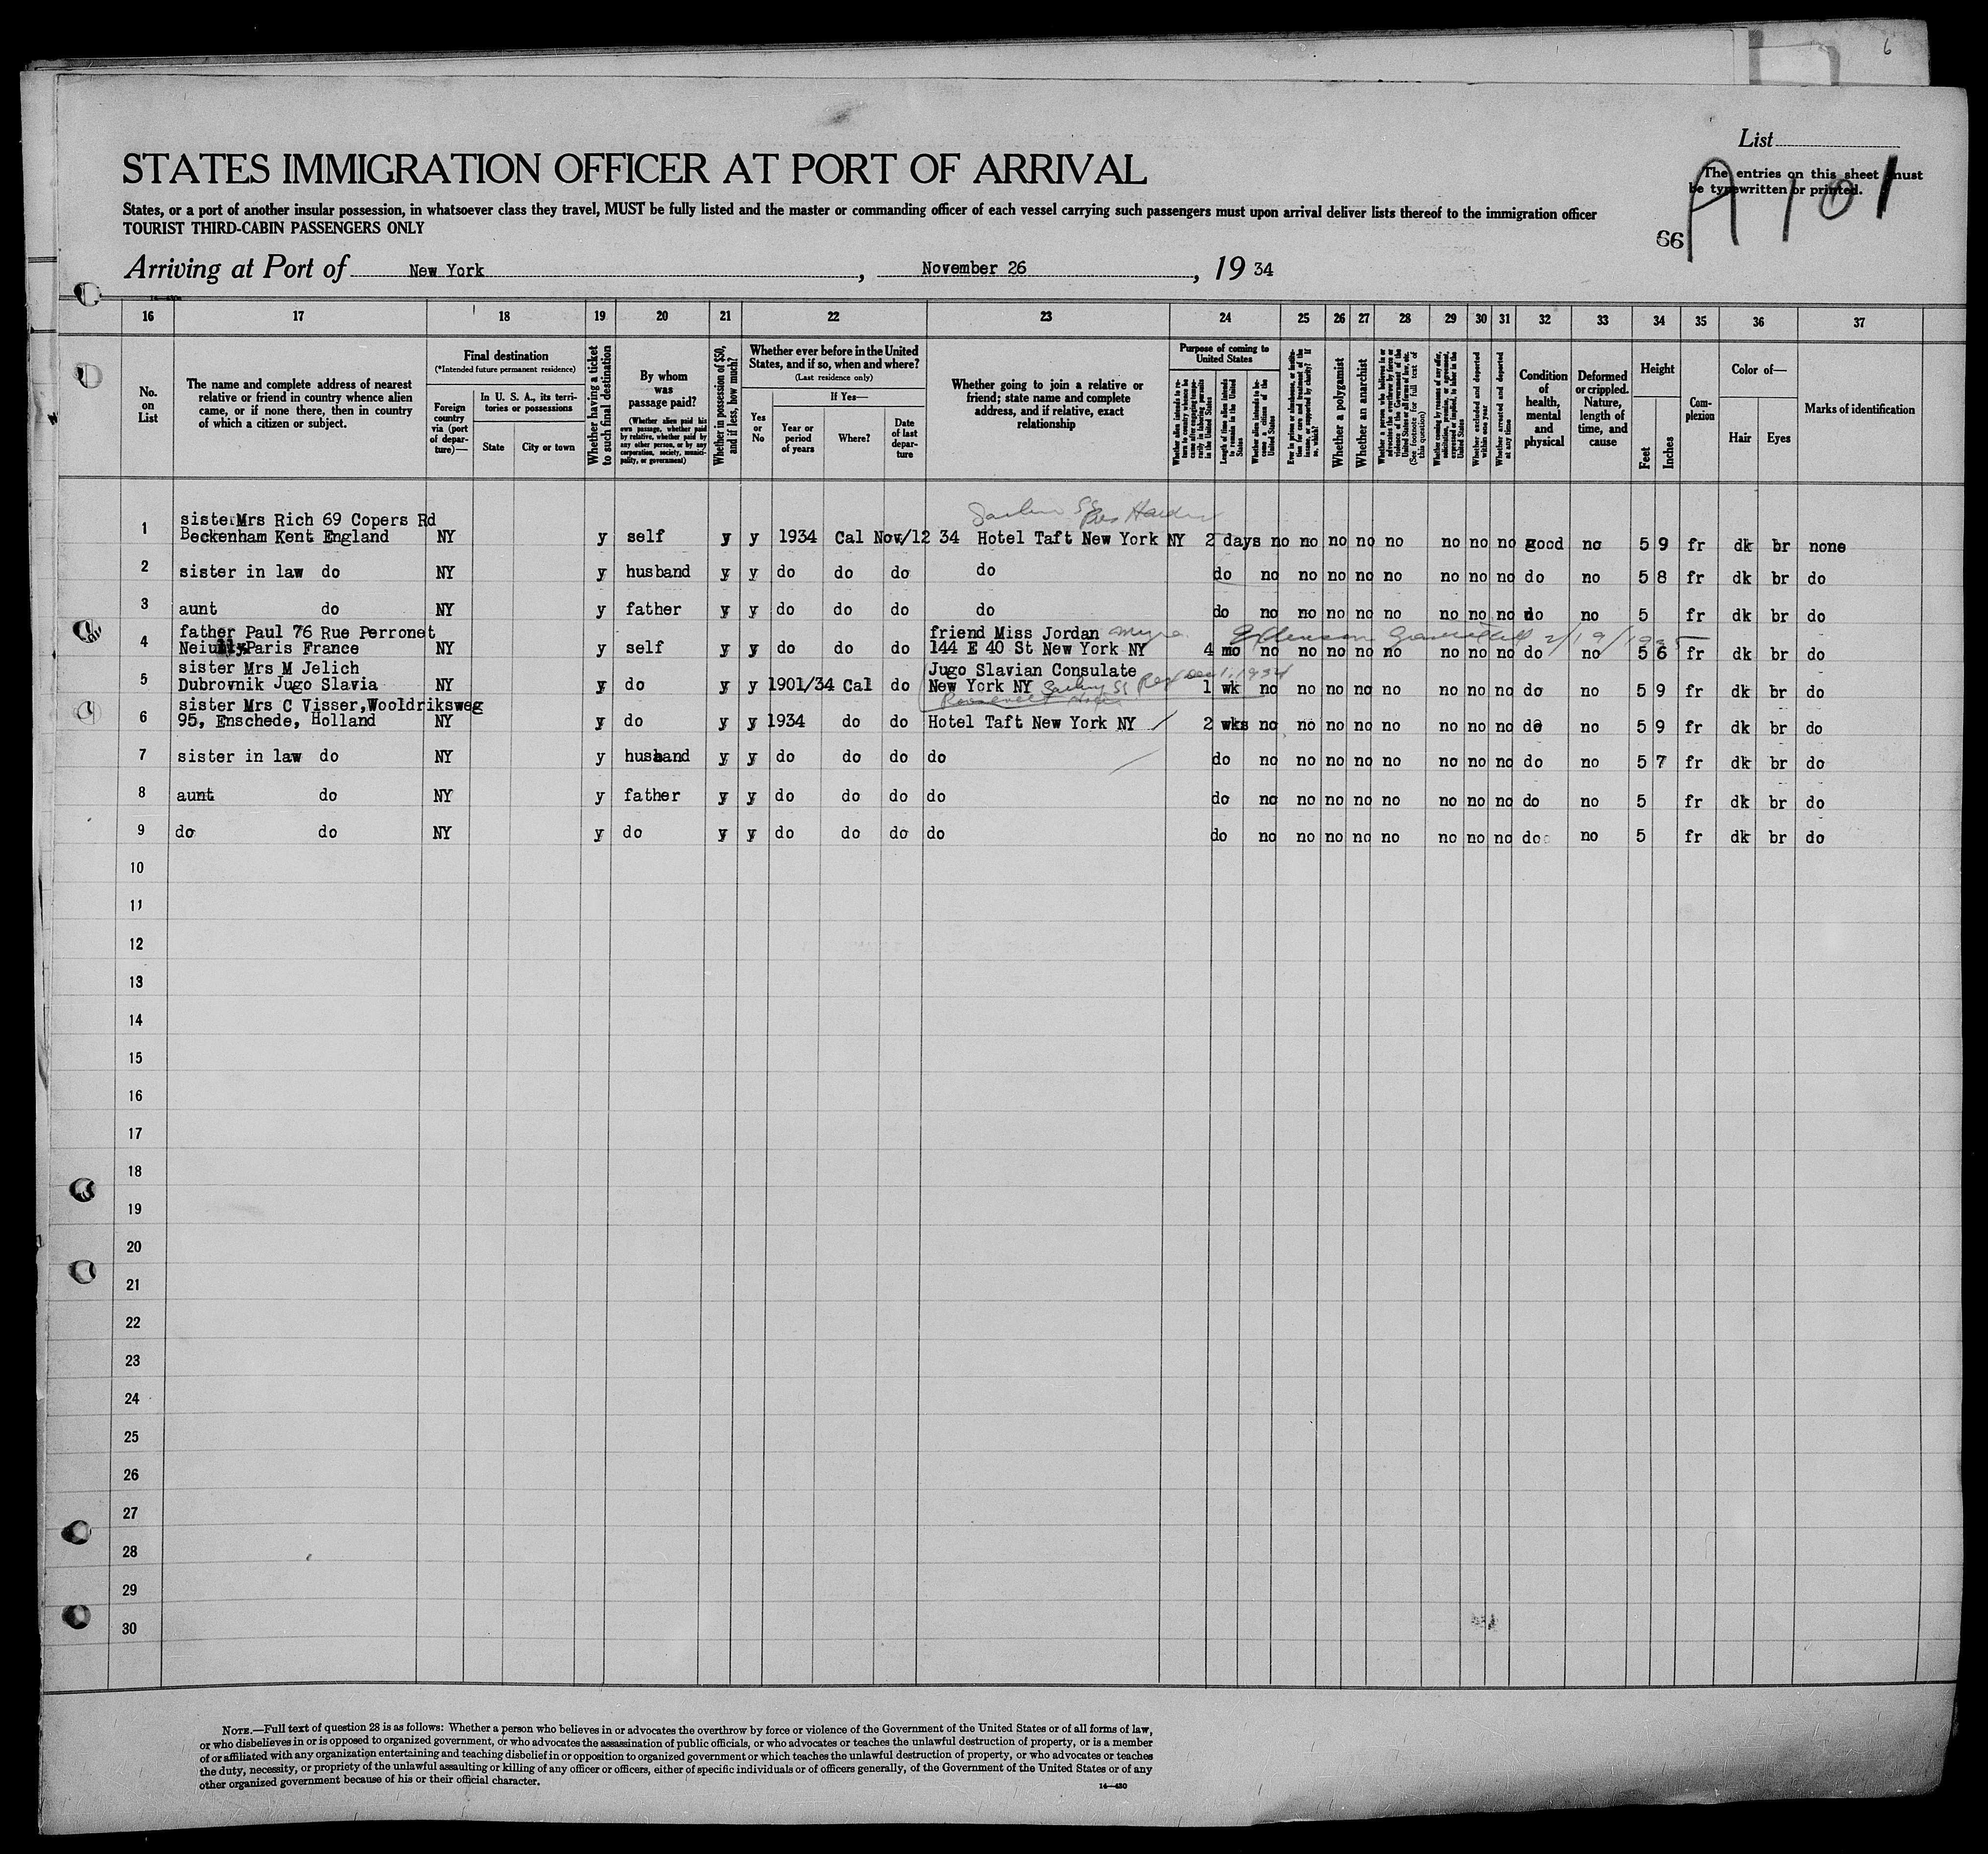 6
List
The entries on this sheet must
be typewritten or printed.
A 101
66
STATES IMMIGRATION OFFICER AT PORT OF ARRIVAL
States, or a port of another insular possession, in whatsoever class they travel, MUST be fully listed and the master or commanding officer of each vessel carrying such passengers must upon arrival deliver lists thereof to the immigration officer
TOURIST THIRD-CABIN PASSENGERS ONLY
Arriving at Port of New York, November 26, 19 34
16 17 18 19 20 21 22 23 24 25 26 27 28 29 30 31 32 33 34 35 36 37
No. on List
The name and complete address of nearest
relative or friend in country whence alien
came, or if none there, then in country
of which a citizen or subject.
Final destination
(*Intended future permanent residence)
Foreign country via (port of departure)—
In U. S. A., its territories or possessions
State
City or town
Whether having a ticket to such final destination
By whom was passage paid?
(Whether alien paid his own passage, whether paid by relative, whether paid by any other person, or by any corporation, society, municipality, or government)
Whether in possession of $50, and if less, how much?
Whether ever before in the United States, and if so, when and where?
(Last residence only)
Yes or No
If Yes—
Year or period of years
Where?
Date of last departure
Whether going to join a relative or
friend; state name and complete
address, and if relative, exact
relationship
Purpose of coming to United States
Length of time alien intends to remain in the United States
Whether alien intends to become a citizen of the United States
Whether a polygamist
Whether an anarchist
Whether excluded and deported within one year
Whether arrested and deported at any time
Condition of health, mental and physical
Deformed or crippled. Nature, length of time, and cause
Height
Feet
Inches
Complexion
Color of—
Hair
Eyes
Marks of identification
1 sister Mrs Rich 69 Copers Rd
Beckenham Kent England NY y self y y 1934 Cal Nov/12 34 Hotel Taft New York NY 2 days no no no no no no no no good no 5 9 fr dk br none
2 sister in law do NY y husband y y do do do do do no no no no no no no no do no 5 8 fr dk br do
3 aunt do NY y father y y do do do do do no no no no no no no no do no 5 fr dk br do
4 father Paul 76 Rue Perronet friend Miss Jordan 2/19/1935
Neiully Paris France NY y self y y do do do 144 E 40 St New York NY 4 mo no no no no no no no no do no 5 6 fr dk br do
5 sister Mrs M Jelich Jugo Slavian Consulate
Dubrovnik Jugo Slavia NY y do y y 1901/34 Cal do New York NY Sailing SS Rex Dec 1, 1934 1 wk no no no no no no no no do no 5 9 fr dk br do
Roosevelt Hotel
6 sister Mrs C Visser, Wooldriksweg
95, Enschede, Holland NY y do y y 1934 do do Hotel Taft New York NY 2 wks no no no no no no no no do no 5 9 fr dk br do
7 sister in law do NY y husband y y do do do do do no no no no no no no no do no 5 7 fr dk br do
8 aunt do NY y father y y do do do do do no no no no no no no no do no 5 fr dk br do
9 do do NY y do y y do do do do do no no no no no no no no do no 5 fr dk br do
10
11
12
13
14
15
16
17
18
19
20
21
22
23
24
25
26
27
28
29
30
NOTE.—Full text of question 28 is as follows: Whether a person who believes in or advocates the overthrow by force or violence of the Government of the United States or of all forms of law,
or who disbelieves in or is opposed to organized government, or who advocates the assassination of public officials, or who advocates or teaches the unlawful destruction of property, or is a member
of or affiliated with any organization entertaining and teaching disbelief in or opposition to organized government or which teaches the unlawful destruction of property, or who advocates or teaches
the duty, necessity, or propriety of the unlawful assaulting or killing of any officer or officers, either of specific individuals or of officers generally, of the Government of the United States or of any
other organized government because of his or their official character.
14—430